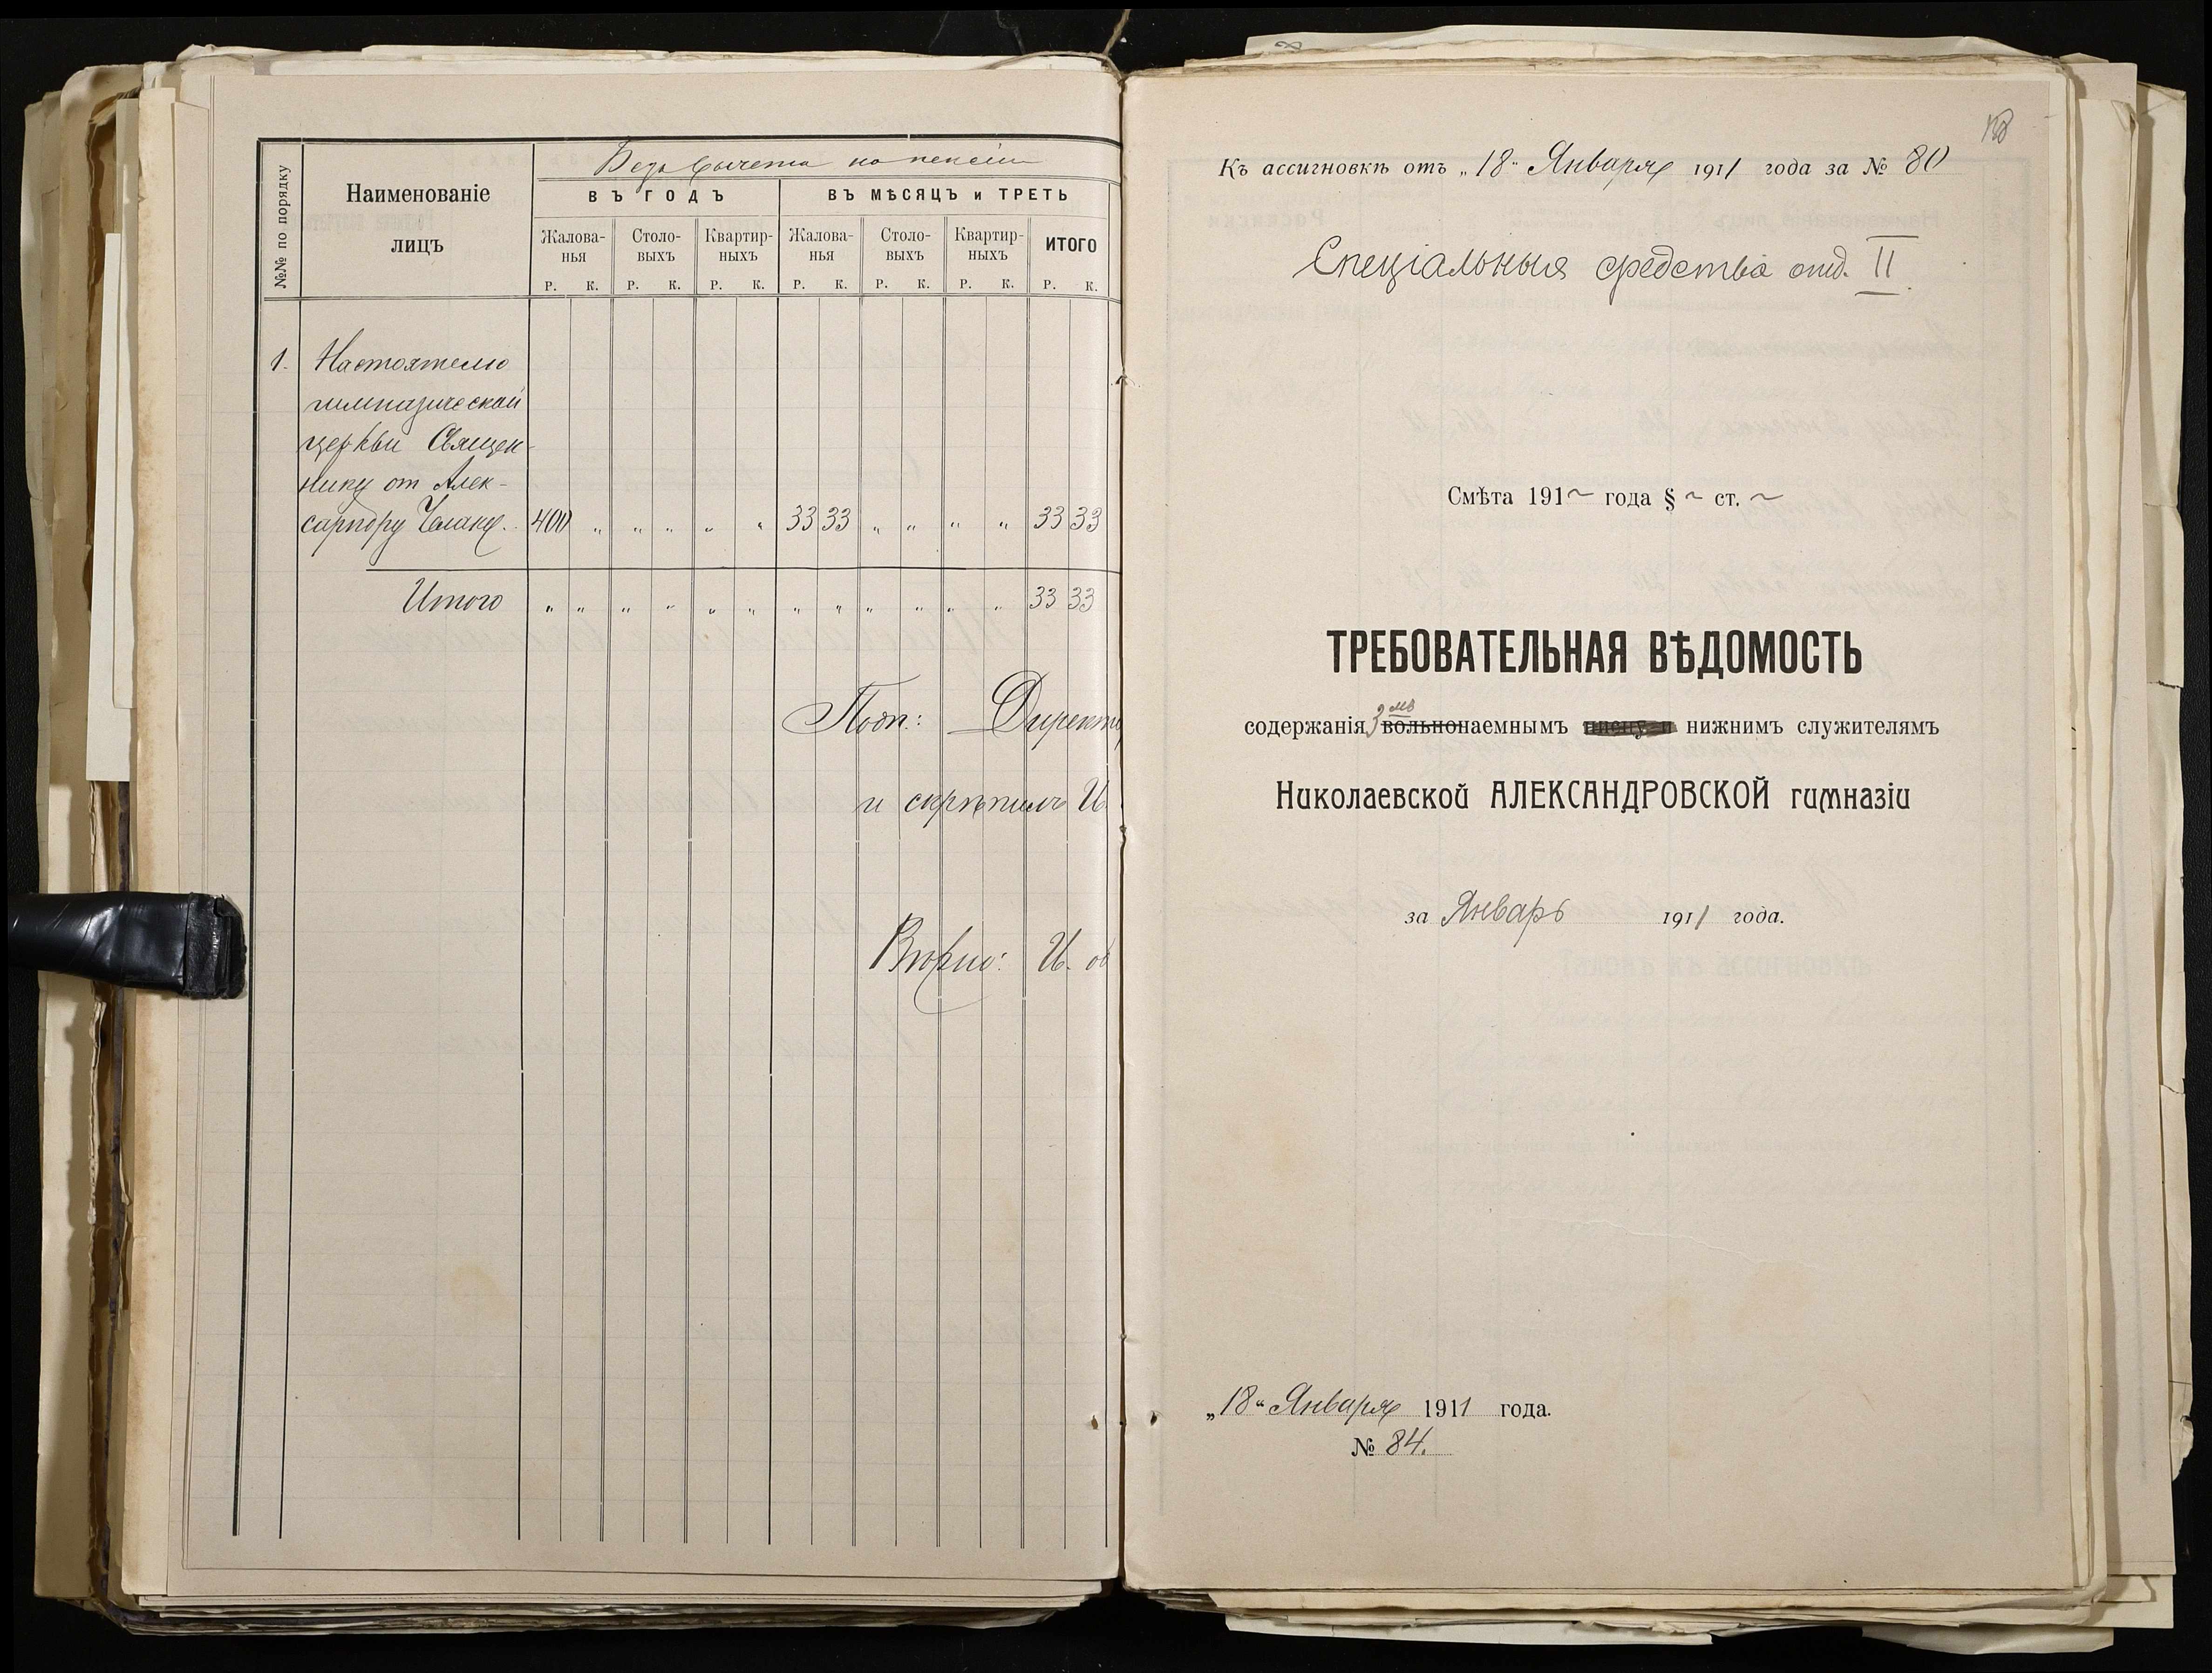 Безъ вычета на пенсіи
№№ по порядку
Наименованіе
лицъ
ВЪ ГОДЪ
ВЪ МѢСЯЦЪ и ТРЕТЬ
Жалова-
нья
Столо-
выхъ
Квартир-
ныхъ
Жалова-
нья
Столо-
выхъ
Квартир-
ныхъ
ИТОГО
Р. К. Р. К. Р. К. Р. К. Р. К. Р. К. Р. К.
1. Настоятелю
гимназической
церкви Священ-
нику от Алек-
сандру 400 „ „ „ „ „ 33 33 „ „ „ „ 33 33
Итого „ „ „ „ „ „ „ „ „ „ „ „ 33 33
Подп: Директо
и скрѣпилъ И.
Вѣрно: И. об
Къ ассигновкѣ отъ „18" Января 1911 года за № 80
Спеціальныя средства отд. II
Смѣта 191~ года § ~ ст. ~
ТРЕБОВАТЕЛЬНАЯ ВѢДОМОСТЬ
содержанія 3мъ вольнонаемнымъ писцу и нижнимъ служителямъ
Николаевской АЛЕКСАНДРОВСКОЙ гимназіи
за Январь 1911 года.
„18“ Января 1911 года.
№ 84.